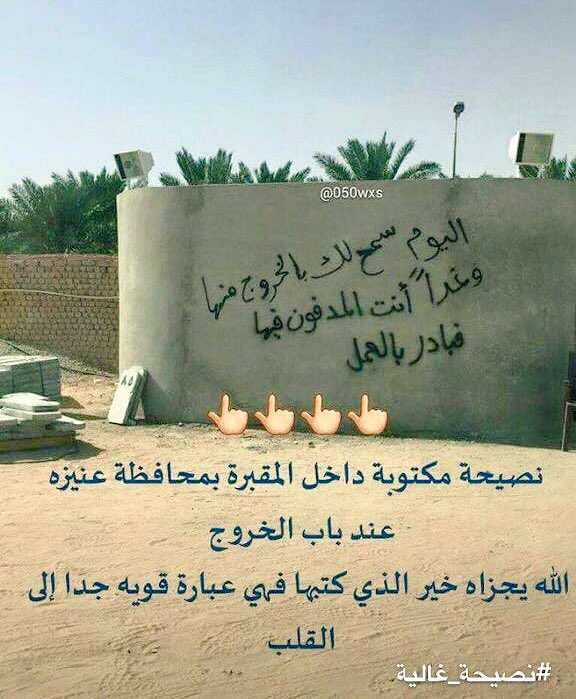 @050wxs
اليوم سمح لك بالخروج منها
وغداً أنت المدفون فيها
فبادر بالعمل
٨٥
👆🏻👆🏻👆🏻👆🏻
نصيحة مكتوبة داخل المقبرة بمحافظة عنيزه
عند باب الخروج
الله يجزاه خير الذي كتبها فهي عبارة قويه جدا إلى
القلب
#نصيحة_غالية